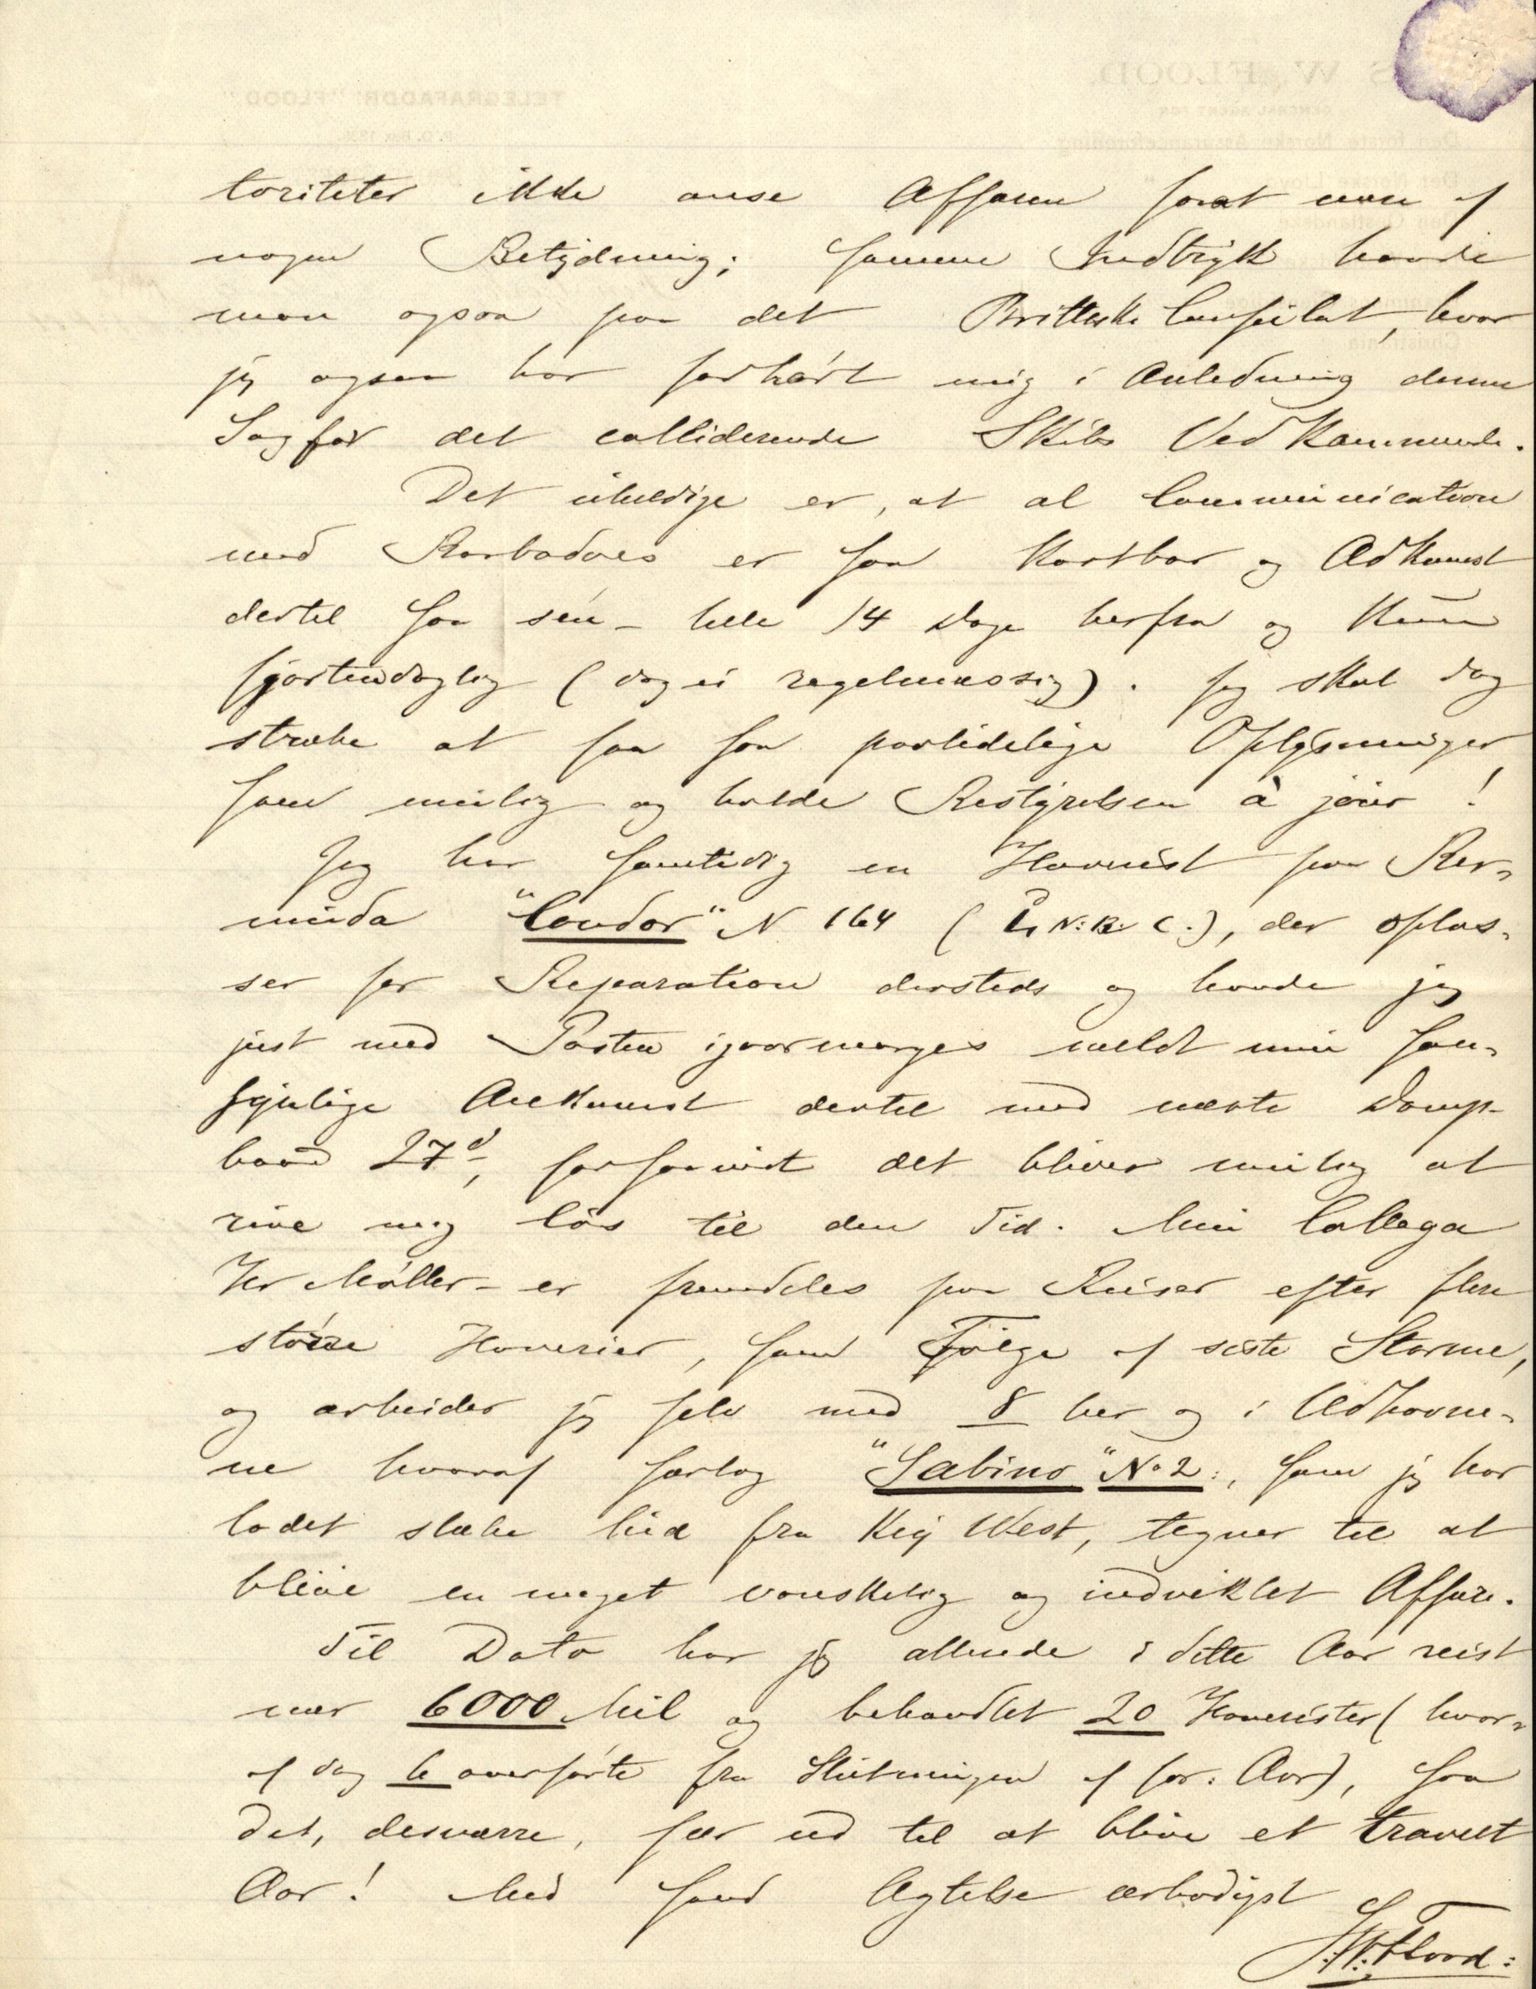 toriteter ikke anse Affæren forat være af
nogen Betydning; samme Indtryk havde
man ogsaa paa det Brittiske Consulat, hvor
jeg ogsaa har forhørt mig i Anledning denne
Sag for det colliderende Skibs Vedkommende.
Det uheldige er, at al Communication
med Barbadoes er saa kostbar og Adkomst
dertil saa sen - hele 14 Dage herfra og kun
fjortendaglig (dog ei regelmæssig). Jeg skal dog
stræbe at faa saa paalidelige Oplysninger
som mulig og holde Bestyrelsen à jour!
Jeg har samtidig en Havarist paa Ber-
muda "Condor" N 164 (2/ N: B: C.), der oplos-
ser for Reparation dersteds og havde jeg
just med Posten igaarmorges meldt min San-
synlige Ankomst dertil med næste Damp-
baad 27d, forsaavidt det bliver mulig at
rive mig løs til den Tid. Min Collega
Hr Møller - er fremdeles paa Reiser efter flere
større Havarier, som Følge af siste Storme,
og arbeider jeg selv med 8 her og i Udhavne-
ne hvoraf særlig "Sabino" No 2:, som jeg har
ladet slæbe hid fra Key West, tegner til at
blive en meget vanskelig og indviklet Affære.
Til Dato har jeg allerede i dette Aar reist
nær 6000 Mil og behandlet 20 Havarister (hvor-
af dog 6 overførte fra Slutningen af for: Aar), saa
det, desværre, ser ud til at blive et travelt
Aar! Med sand Agtelse ærbødigst
S. W. Flood:
S W. FLOOD.
GENERAL AGENT FOR
TELEGRAFADDR: "FLOOD"
Den Første Norske Assuranceforening
Christiania